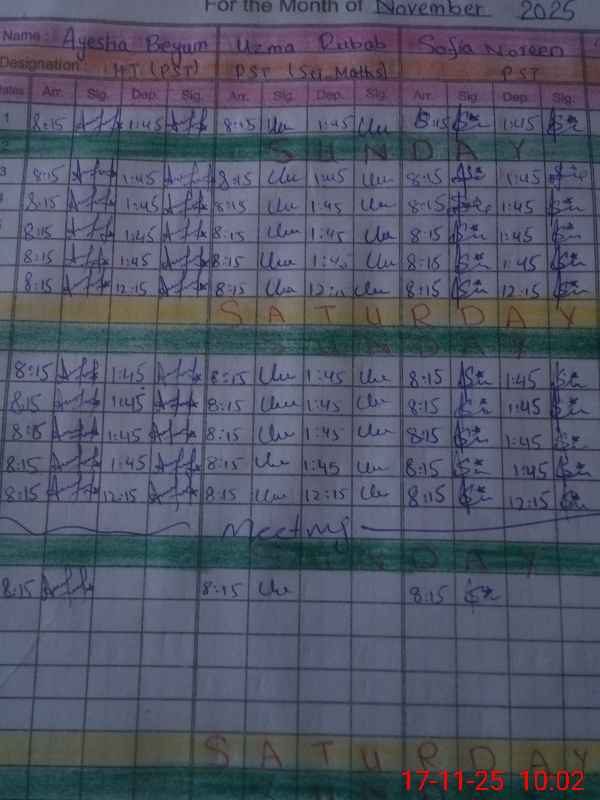 For the Month of November 2025
Name: Ayesha Begum Uzma Rubab Sofia Noreen
Designation: HT (PST) PST (Sci. Maths) PST
Dates Arr. Sig. Dep. Sig. Arr. Sig. Dep. Sig. Arr. Sig. Dep. Sig.
1 8:15 1:45 8:15 1:45 8:15 1:45
2 SUNDAY
3 8:15 1:45 8:15 1:45 8:15 1:45
8:15 1:45 8:15 1:45 8:15 1:45
8:15 1:45 8:15 1:45 8:15 1:45
8:15 1:45 8:15 1:45 8:15 1:45
8:15 12:15 8:15 12:15 8:15 12:15
SATURDAY
SUNDAY
8:15 1:45 8:15 1:45 8:15 1:45
8:15 1:45 8:15 1:45 8:15 1:45
8:15 1:45 8:15 1:45 8:15 1:45
8:15 1:45 8:15 1:45 8:15 1:45
8:15 12:15 8:15 12:15 8:15 12:15
Meeting
SUNDAY
8:15 8:15 8:15
SATURDAY
17-11-25 10:02